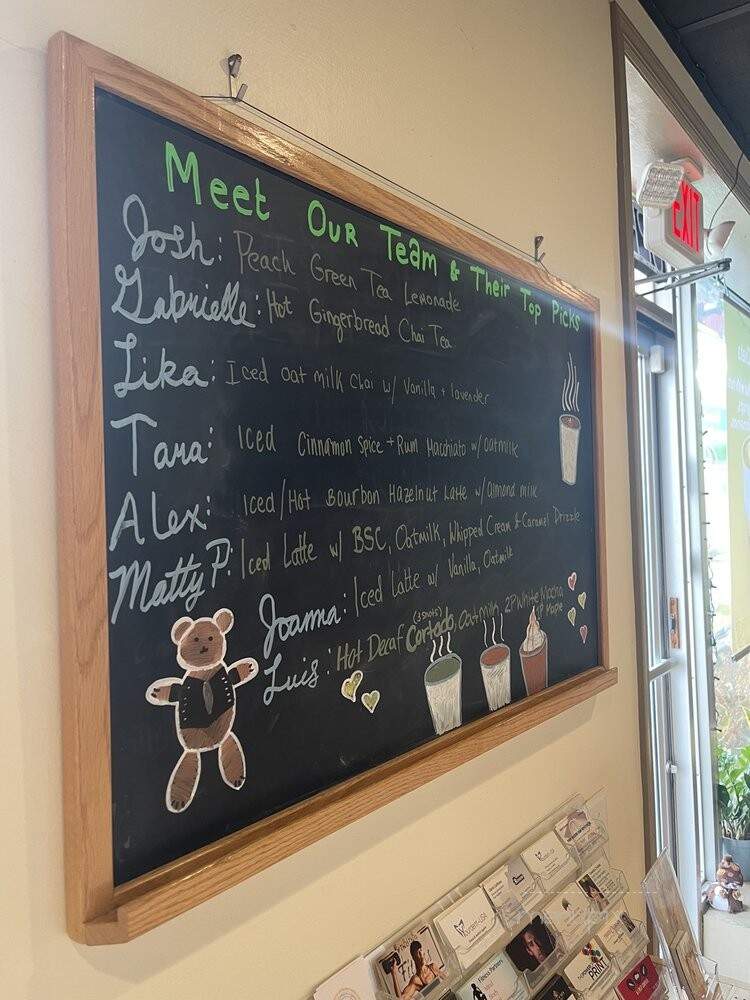 Meet Our Team & Their Top Picks
Josh: Peach Green Tea Lemonade
Gabrielle: Hot Gingerbread Chai Tea
Lika: Iced oat milk Chai w/ Vanilla + lavender
Tara: Iced Cinnamon Spice + Rum Macchiato w/ oatmilk
Alex: Iced/Hot Bourbon Hazelnut Latte w/ almond milk
Matty P: Iced Latte w/ BSC, Oatmilk, Whipped Cream & Caramel Drizzle
Joanna: Iced Latte w/ Vanilla, Oatmilk
(3 shots)
Luis: Hot Decaf Cortado, Oatmilk, 2P White Mocha
1P Maple
EXIT
PRINT